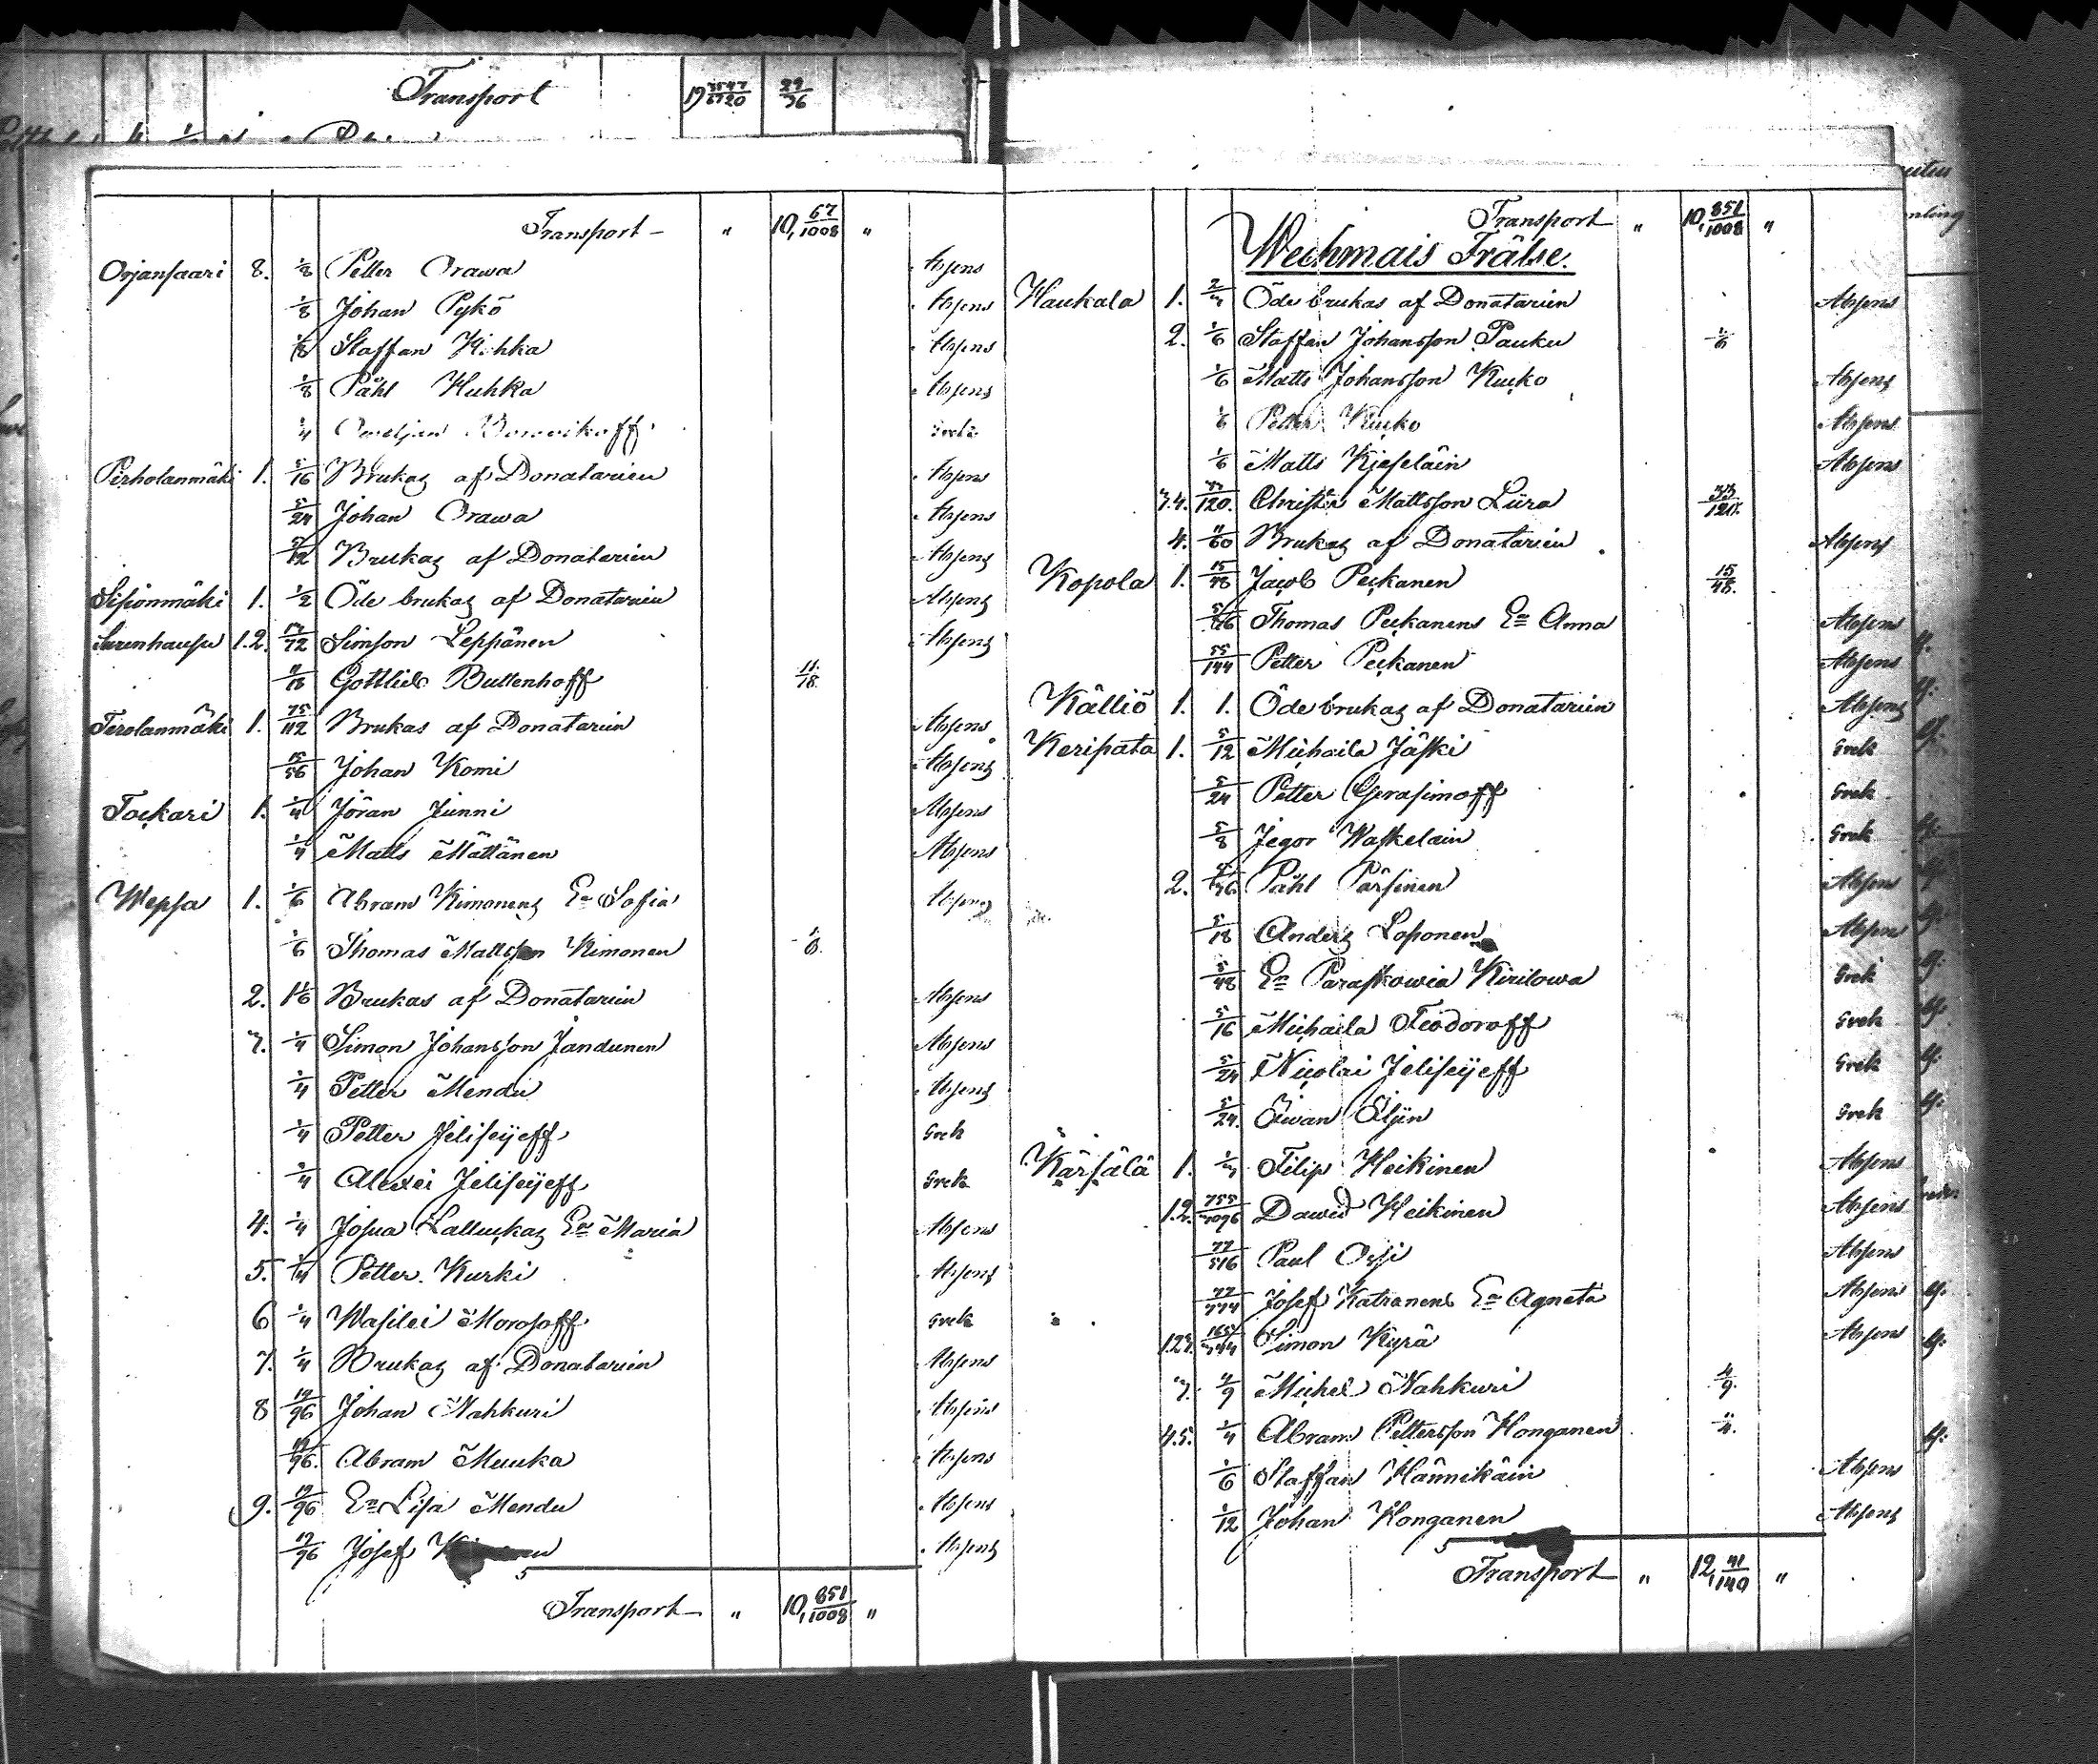 Transport 19 3547/6720 29/36
Transport „ 10, 67/1008 „
Orjansaari 8. 1/8 Petter Orawa Absens
1/8 Johan Pykö Absens
1/8 Staffan Absens
1/8 Påhl Huhka Absens
1/4 Grek
Pirholanmäki 1. 5/16 Brukas af Donatarien Absens
5/24 Johan Orawa Absens
5/12 Brukas af Donatarien Absens
Sipionmäki 1. 1/2 Öde brukas af Donatarien Absens
1.2. Simson Leppänen Absens
11/18 Gottlieb Buttenhoff 11/18.
Terolanmäki 1. 75/112 Brukas af Donatarien Absens
15/56 Johan Komi Absens
Tockari 1. 1/4 Jöran Junni Absens
1/4 Matts Mättänen Absens
Wepsa 1. 1/6 Abram Kimonens Ea Sofia Absens
1/6 Thomas Mattsson Kimonen 1/6.
2. 1 1/6 Brukas af Donatarien Absens
3. 1/4 Simon Johansson Jandunen Absens
1/4 Petter Mendu Absens
1/4 Petter Jelisejeff Grek
1/4 Alexei Jelisejeff Grek
4. 1/4 Josua Lalluckas Ea Maria Absens
5. 1/4 Petter Kurki Absens
6 1/4 Wasilei Morosoff Grek
7. 1/4 Brukas af Donatarien Absens
8 19/96 Johan Nahkuri Absens
19/96. Abram Muuka Absens
9. 19/96 Ea Lisa Mendu Absens
19/96 Josef Absens
Transport „ 10, 851/1008 „
Transport „ 10, 851/1008 „
Wechmais Frälse.
Haukala 1. Öde brukas af Donatarien Absens
2. 1/6 Staffan Johansson Pauku 1/6
1/6 Matts Johansson Kucko Absens
1/6 Petter Kucko Absens
1/6 Matts Kjeseläin Absens
3.4. 33/120. Christer Mattsson Liira 33/120.
4. 11/60 Brukas af Donatarien Absens
Kopola 1. 15/48 Jacob Peckanen 15/48.
Thomas Peckanens Ea Anna Absens
55/144 Petter Peckanen Absens
Källiö 1. 1. Öde brukas af Donatarien Absens
Keripata 1. 5/12 Michaila Jäski Grek
5/24 Petter Gerasimoff Grek
5/8 Jegor Waskelain Grek
2. Påhl Pärsinen Absens
5/18 Anders Loponen Absens
5/48 Ea Paraskowia Kirilowa Grek
5/16 Michaila Feodoroff Grek
5/24 Nicolai Jelisejeff Grek
5/24. Iwan Iljin Grek
Kärsälä 1. Filip Heikinen Absens
1.2. Dawid Heikinen Absens
77/516 Paul Orsi Absens
77/774 Josef Katranens Ea Agneta Absens
1.2.3. Simon Kyrä Absens
3. 4/9 Michel Nahkuri 4/9.
4.5. 1/4 Abram Pettersson Honganen 1/4.
1/6 Staffan Hännikäin Absens
1/12 Johan Honganen Absens
Transport „ 12, 41/140 „